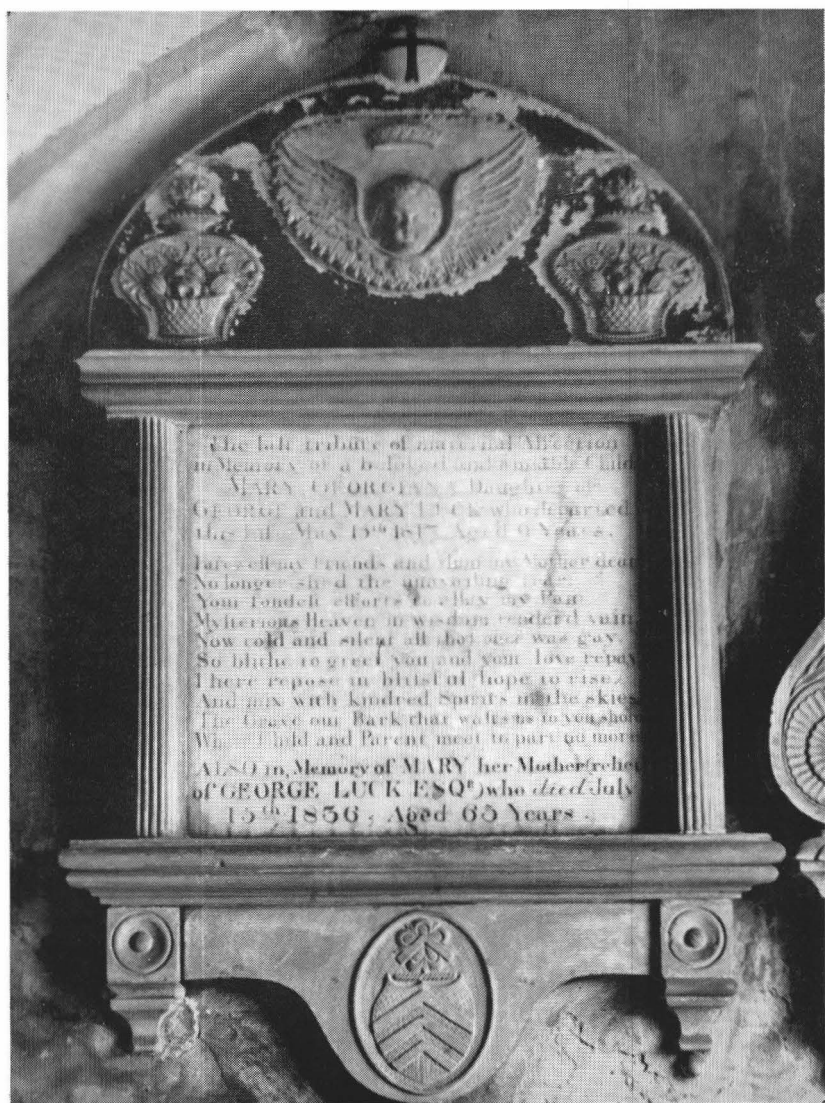 The last tribute of maternal Affection
in Memory of a beloved and amiable Child
MARY GEORGIANA Daughter of
GEORGE and MARY LUCK who departed
this life May 15th Aged 9 Years.
Farewell my Friends and thou my Mother dear
No longer shed the unavailing tear
Your fondest efforts to allay my Pain
Mysterious Heaven in wisdom render'd vain
Now cold and silent all that once was gay,
So blithe to greet you and your love repay
I here repose in blissful hope to rise,
And mix with kindred Spirits in the skies
The Grave our Bark that wafts us to yon shore
Where Child and Parent meet to part no more
ALSO in Memory of MARY her Mother (relict
of GEORGE LUCK ESQR) who died July
15th 1836, Aged 63 Years.